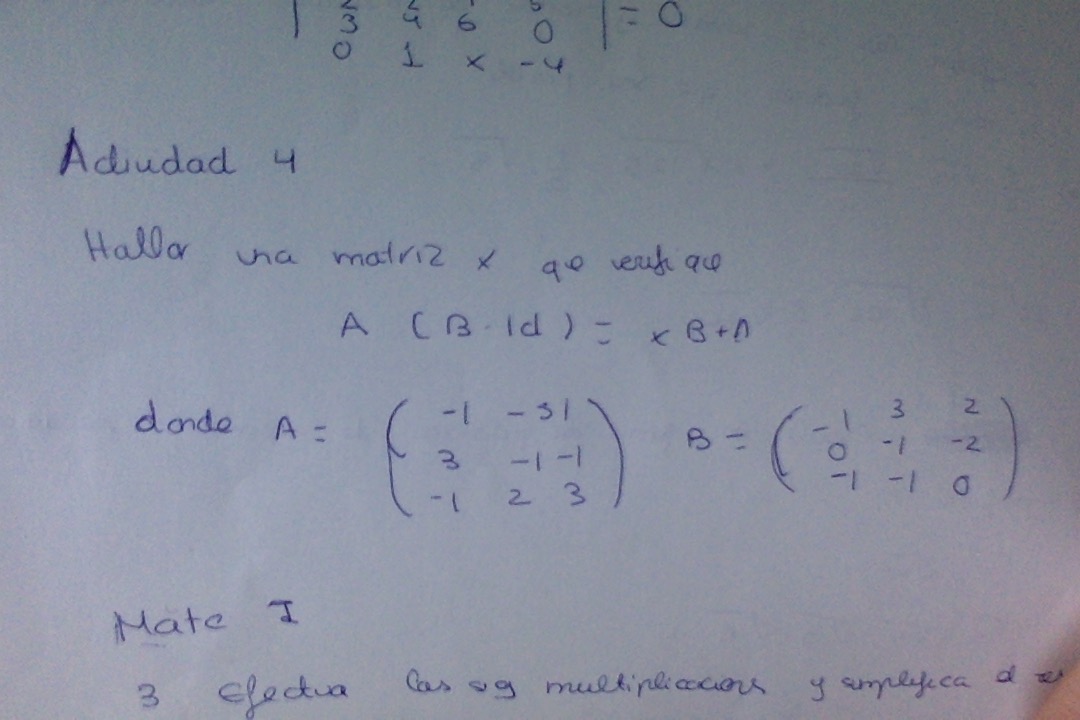 3 4 6 0 = 0
0 1 x -4
Actividad 4
Hallar una matriz x que verifique
A (B - Id) = x B + A
donde A = B =
-1 -3 1
3 -1 -1
-1 2 3
-1 3 2
0 -1 -2
-1 -1 0
Mate I
3 Efectua las sig multiplicacions y simplifica